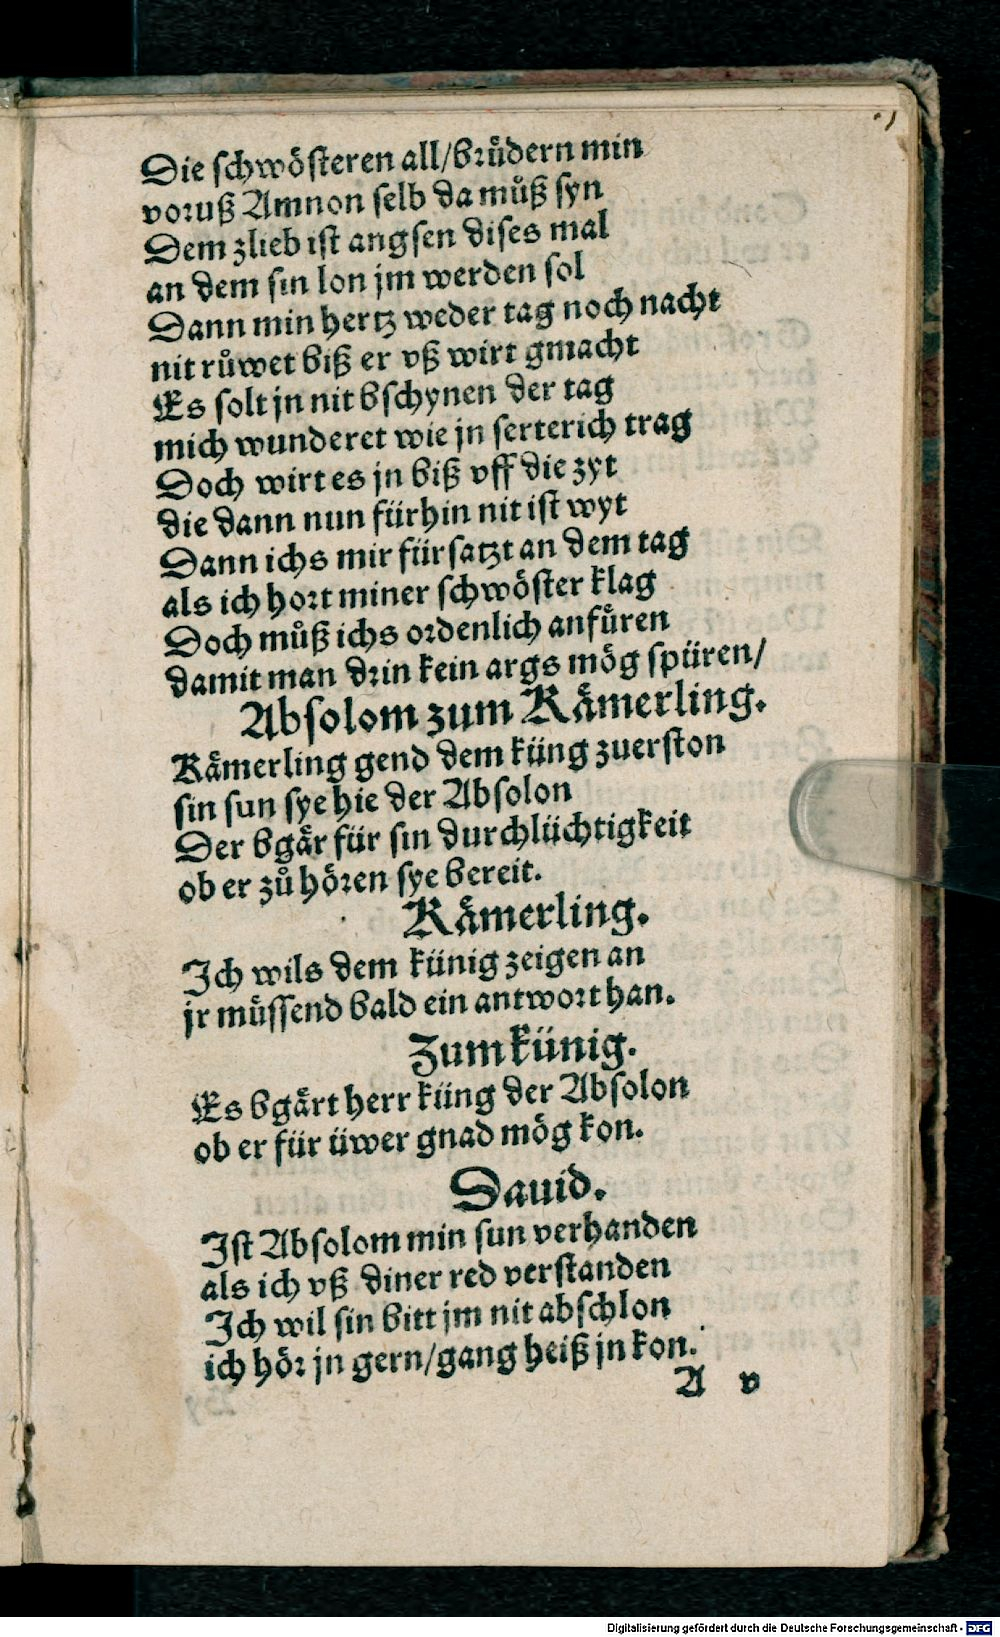 Die schwösteren all/brůdern min
voruß Amnon selb da můß syn
Dem zlieb ist angsen dises mal
an dem sin lon jm werden sol
Dann min hertz weder tag noch nacht
nit růwet biß er vß wirt gmacht
Es solt jn nit bschynen der tag
mich wunderet wie jn serterich trag
Doch wirt es jn biß vff die zyt
die dann nun fürhin nit ist wyt
Dann ichs mir fürsatzt an dem tag
als ich hort miner schwöster klag
Doch můß ichs ordenlich anfůren
damit man drin kein args mög spüren/
Absolom zum Kämerling.
Kämerling gend dem küng zuerston
sin sun sye hie der Absolon
Der bgär für sin durchlüchtigkeit
ob er zů hören sye bereit.
Kämerling.
Ich wils dem künig zeigen an
jr müssend bald ein antwort han.
Zum künig.
Es bgärt herr küng der Absolon
ob er für üwer gnad mög kon.
Dauid.
Ist Absolom min sun verhanden
als ich vß diner red verstanden
Ich wil sin bitt jm nit abschlon
ich hör jn gern/gang heiß jn kon.
A v
Digitalisierung gefördert durch die Deutsche Forschungsgemeinschaft - DFG